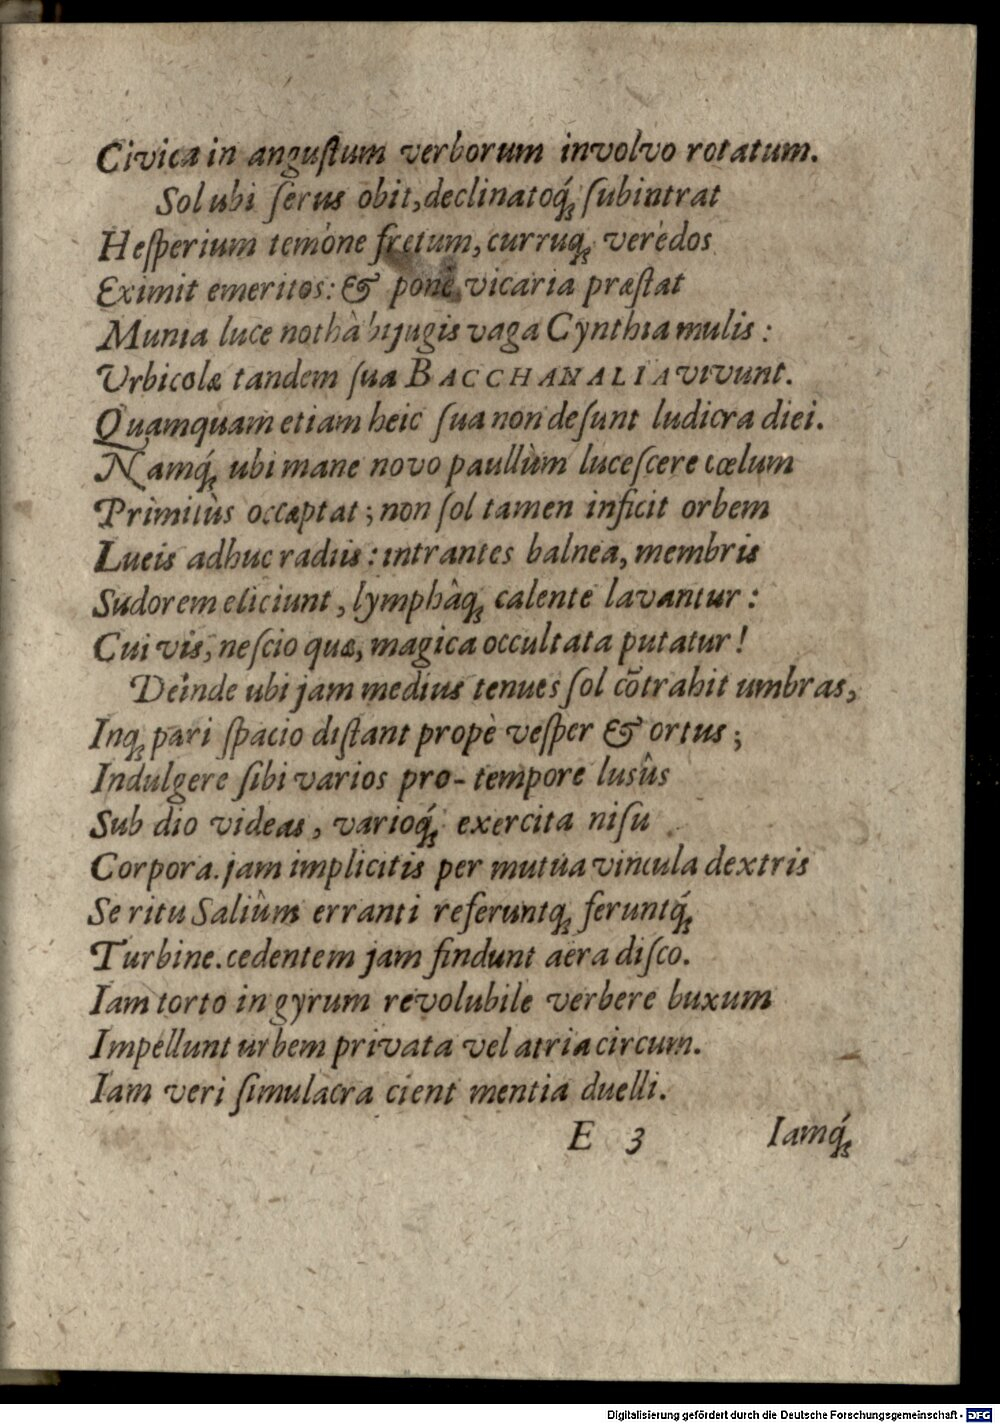 Civica in anguſtum verborum involvo rotatum.
Sol ubi ſerus obit, declinatoq́; ſubintrat
Heſperium temòne fretum, curruq; verèdos
Eximit emeritos: & ponè vicaria præſtat
Munia luce nothâ bijugis vaga Cynthia mulis:
Urbicolæ tandem ſua BACCHANALIA vivunt.
Quamquam etiam heic ſua non deſunt ludicra diei.
Namq́; ubi mane novo paullùm luceſcere cœlum
Primitùs occæptat; non ſol tamen inficit orbem
Lueis adhuc radiis: intrantes balnea, membris
Sudorem eliciunt, lymphâq; calente lavantur:
Cui vis, neſcio quæ, magica occultata putatur!
Deinde ubi jam medius tenues ſol cõtrahit umbras,
Inq; pari ſpacio diſtant propè veſper & ortus;
Indulgere ſibi varios pro-tempore lusûs
Sub dio videas, varioq́; exercita niſu
Corpora. jam implicitis per mutua vincula dextris
Se ritu Saliûm erranti referuntq; feruntq́;
Turbine. cedentem jam findunt aëra diſco.
Iam torto in gyrum revolubile verbere buxum
Impellunt urbem privata vel atria circum.
Iam veri ſimulacra cient mentia duelli.
E 3 Iamq́;
Digitalisierung gefördert durch die Deutsche Forschungsgemeinschaft - DFG